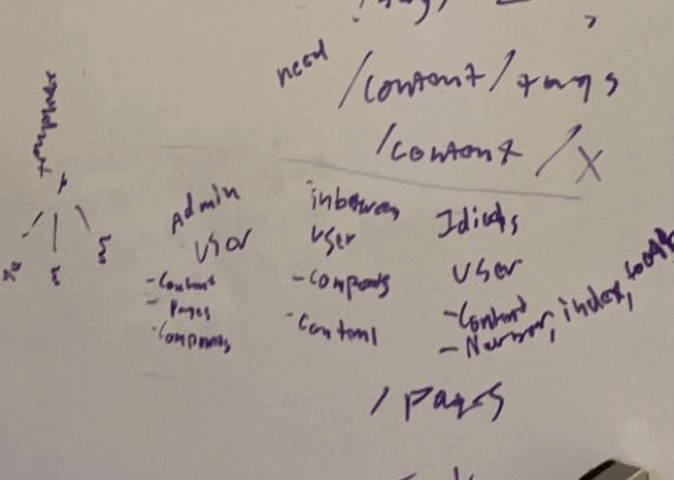 need /content/tags
/content/X
Admin
user
- Content
- Pages
- Components
inbetween
user
- Components
- Content
Idiots
user
- Content
- Navbar, index, footer
/pages